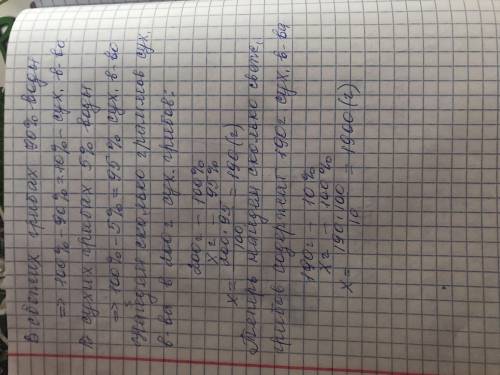 В свежих грибах 90% воды
=> 100% - 90% = 10% - сух. в-во
В сухих грибах 5% воды
=> 100% - 5% = 95% сух. в-во
Найдём сколько граммов сух.
в-ва в 200г сух. грибов:
200г - 100%
xг - 95%
x = 200·95 / 100 = 190 (г)
Теперь найдём сколько свеж.
грибов содержат 190г сух. в-ва
190г - 10%
xг - 100%
x = 190·100 / 10 = 1900 (г)